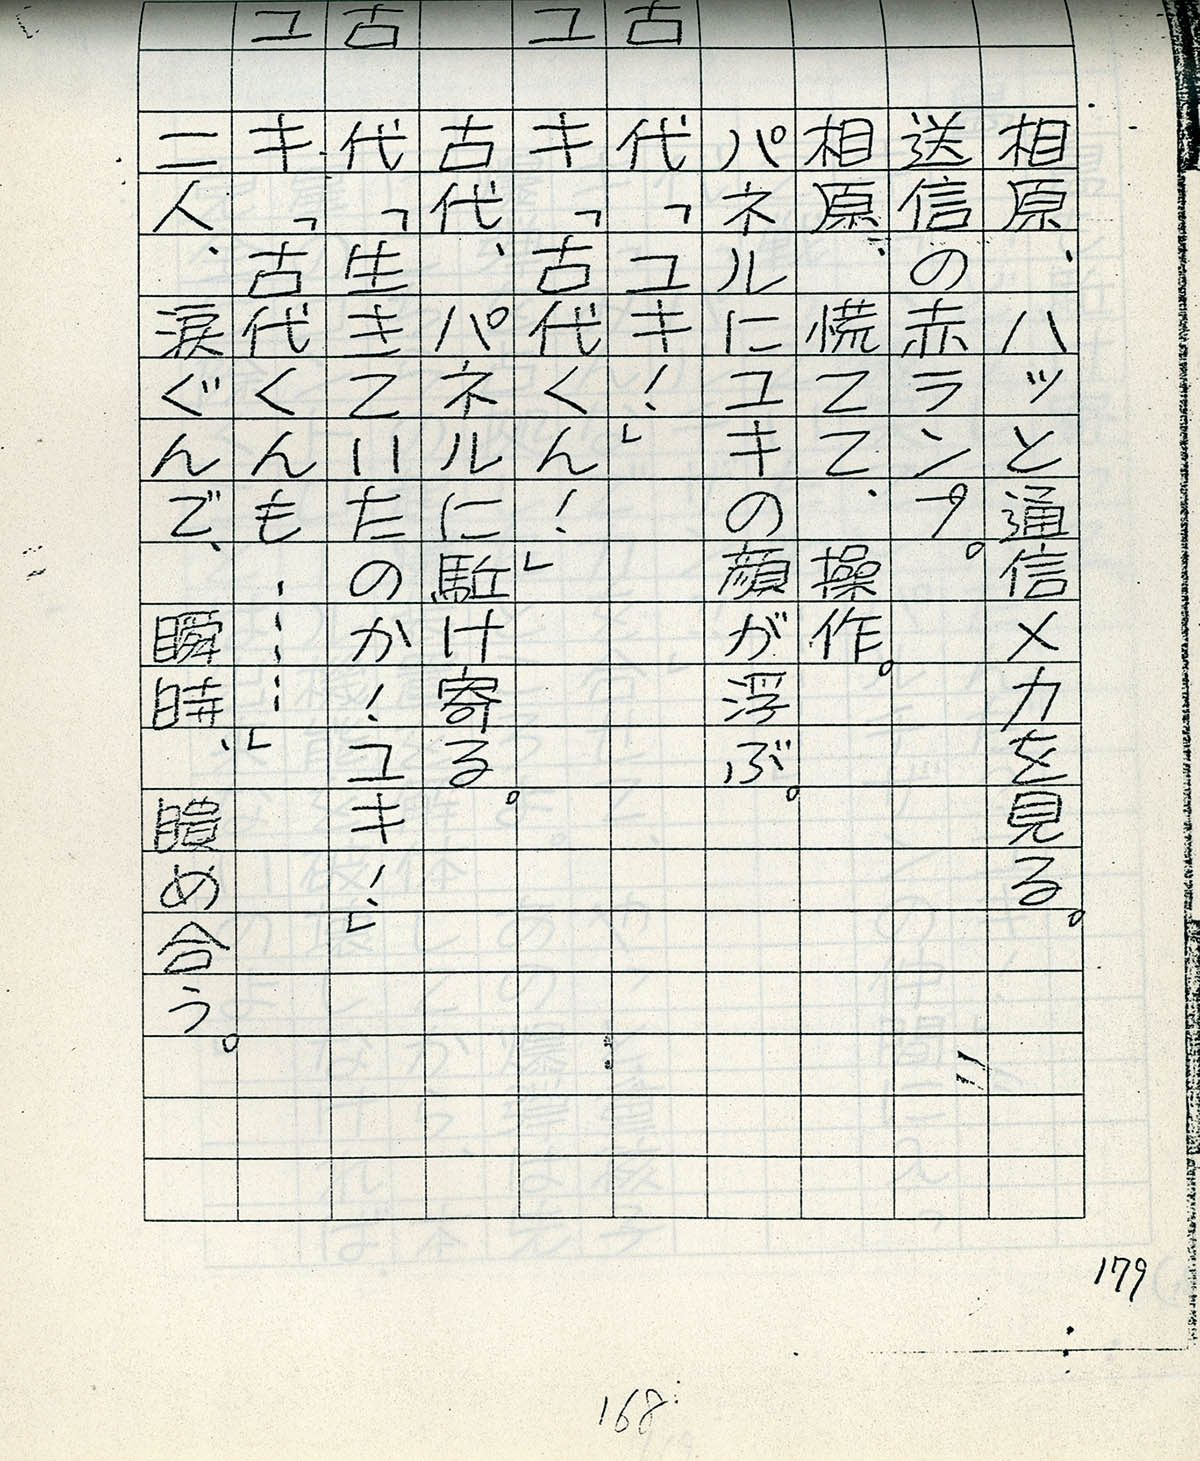 相原、ハッと通信メカを見る。
送信の赤ランプ。
相原、慌てて、操作。
パネルにユキの顔が浮ぶ。
古代「ユキ!」
ユキ「古代くん!」
古代、パネルに駈け寄る。
古代「生きていたのか!ユキ!」
ユキ「古代くんも、……」
二人、涙ぐんで、瞬時、瞶め合う。
179
168